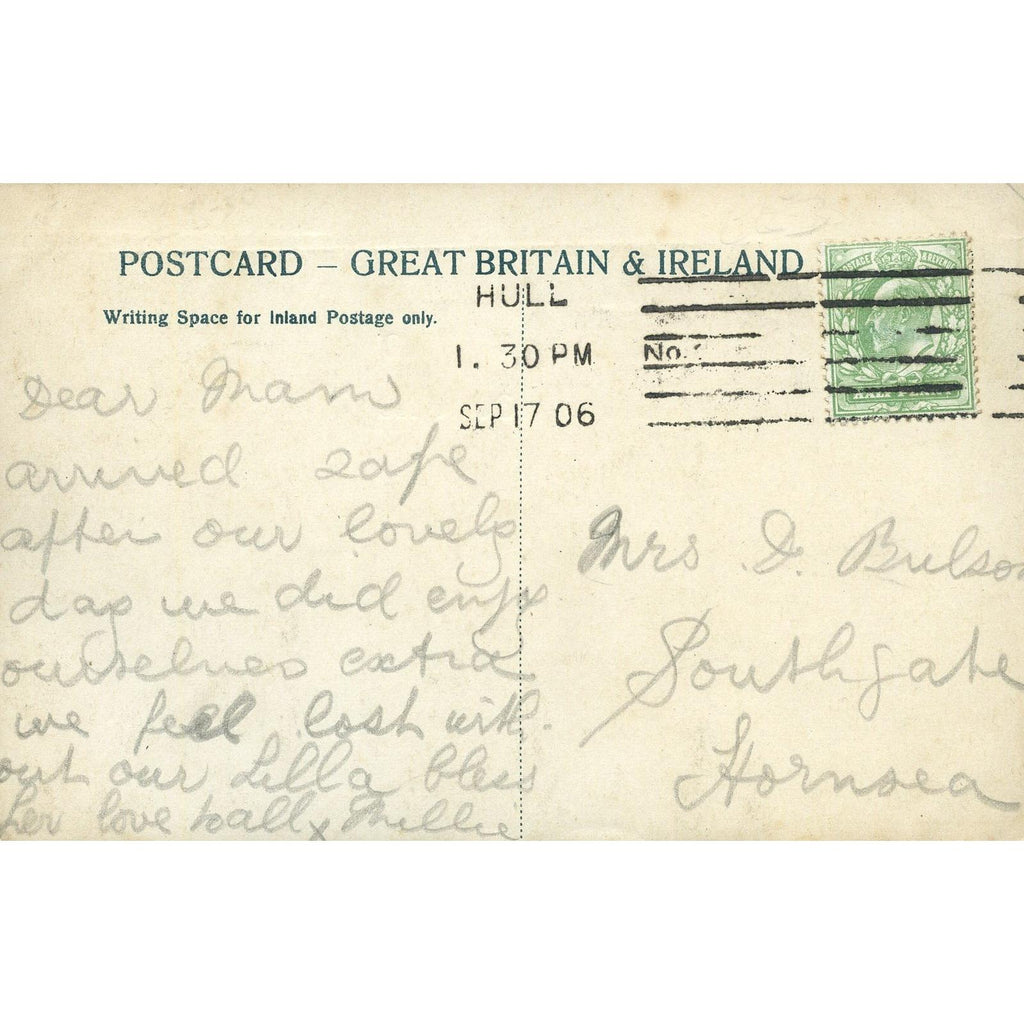 POSTCARD – GREAT BRITAIN & IRELAND
Writing Space for Inland Postage only.
HULL
1. 30 PM
SEP 17 06
No.
POSTAGE & REVENUE
Dear Mam
arrived safe
after our lovely
day we did enjoy
ourselves extra
we feel lost with-
out our Lilla bless
her love to all x Millie
Mrs D. Bulson
Southgate
Hornsea